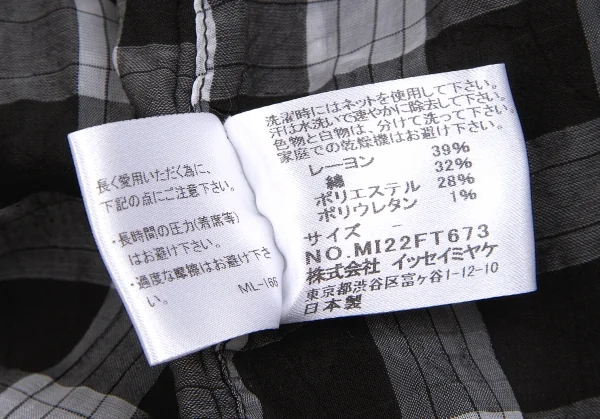 長く愛用いただく為に、
下記の点にご注意下さい。
・長時間の圧力(着席等)
はお避け下さい。
・過度な摩擦はお避け下さ
い。
ML-166
洗濯時にはネットを使用して下さい。
汗は水洗いで速やかに除去して下さい。
色物と白物は、分けて洗って下さい。
家庭での乾燥機はお避け下さい。
レーヨン 39%
綿 32%
ポリエステル 28%
ポリウレタン 1%
サイズ －
NO.MI22FT673
株式会社 イッセイミヤケ
東京都渋谷区富ヶ谷1-12-10
日本製